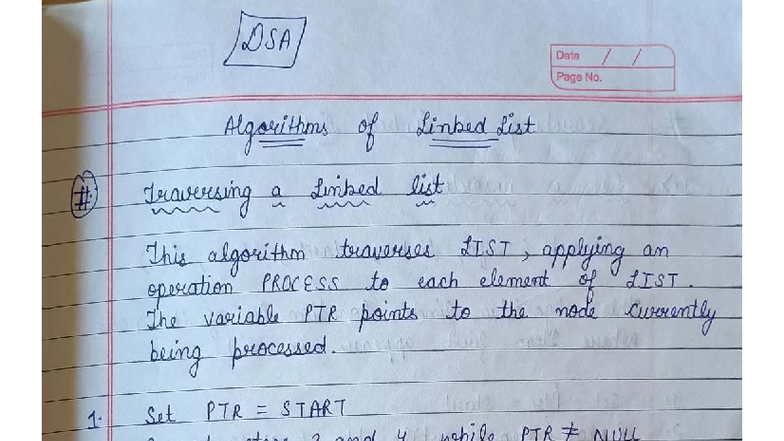 DSA
Date / /
Page No.
Algorithms of Linked List
# Traversing a Linked list
This algorithm traverses LIST, applying an
operation PROCESS to each element of LIST.
The variable PTR points to the node currently
being processed.
1. Set PTR = START
3 and 4 while PTR ≠ NULL